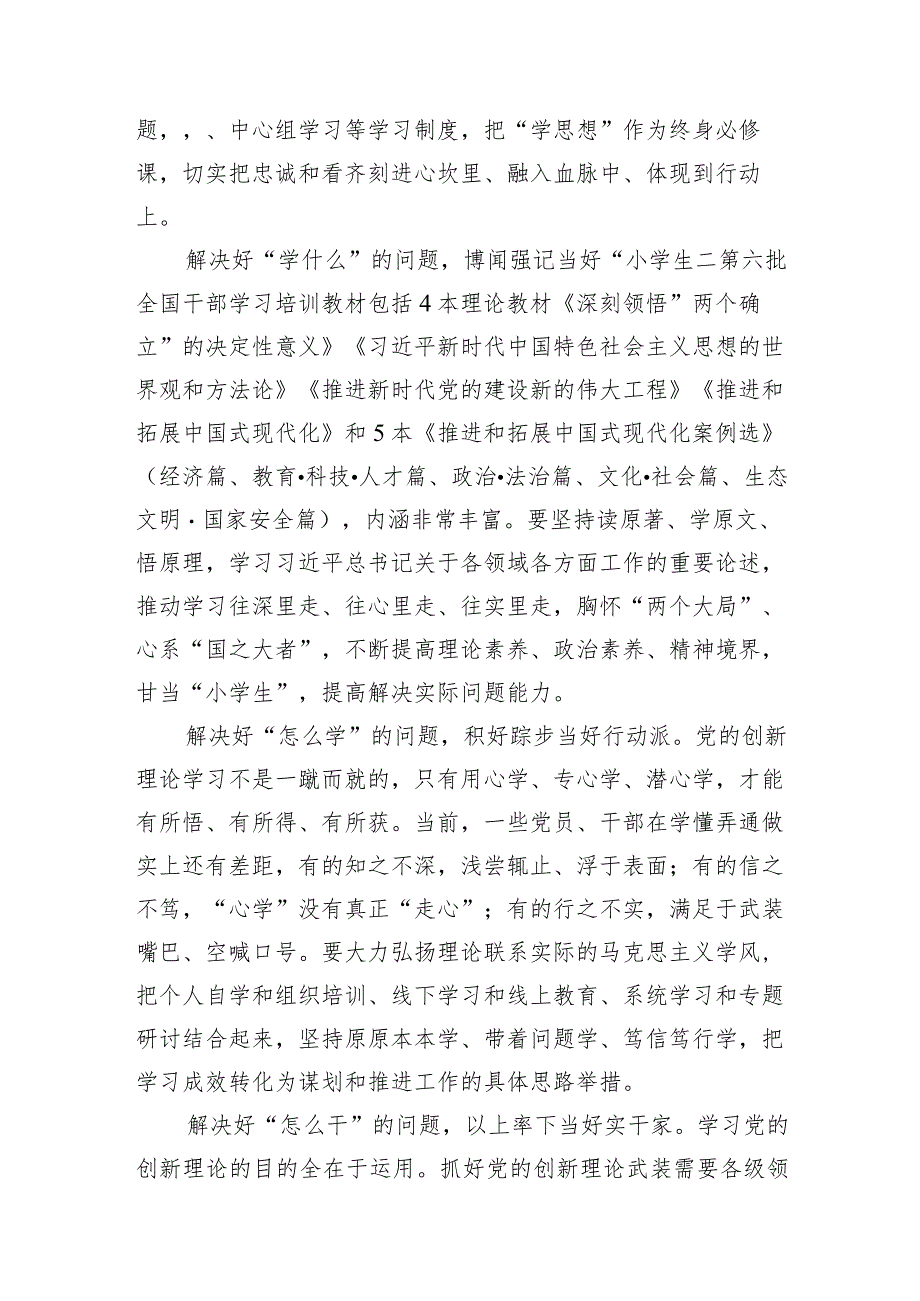 题，，、中心组学习等学习制度，把“学思想”作为终身必修
课，切实把忠诚和看齐刻进心坎里、融入血脉中、体现到行动
上。
解决好“学什么”的问题，博闻强记当好“小学生二第六批
全国干部学习培训教材包括4本理论教材《深刻领悟”两个确
立”的决定性意义》《习近平新时代中国特色社会主义思想的世
界观和方法论》《推进新时代党的建设新的伟大工程》《推进和
拓展中国式现代化》和5本《推进和拓展中国式现代化案例选》
（经济篇、教育•科技•人才篇、政治•法治篇、文化•社会篇、生态
文明·国家安全篇），内涵非常丰富。要坚持读原著、学原文、
悟原理，学习习近平总书记关于各领域各方面工作的重要论述，
推动学习往深里走、往心里走、往实里走，胸怀“两个大局”、
心系“国之大者”，不断提高理论素养、政治素养、精神境界，
甘当“小学生”，提高解决实际问题能力。
解决好“怎么学”的问题，积好踪步当好行动派。党的创新
理论学习不是一蹴而就的，只有用心学、专心学、潜心学，才能
有所悟、有所得、有所获。当前，一些党员、干部在学懂弄通做
实上还有差距，有的知之不深，浅尝辄止、浮于表面；有的信之
不笃，“心学”没有真正“走心”；有的行之不实，满足于武装
嘴巴、空喊口号。要大力弘扬理论联系实际的马克思主义学风，
把个人自学和组织培训、线下学习和线上教育、系统学习和专题
研讨结合起来，坚持原原本本学、带着问题学、笃信笃行学，把
学习成效转化为谋划和推进工作的具体思路举措。
解决好“怎么干”的问题，以上率下当好实干家。学习党的
创新理论的目的全在于运用。抓好党的创新理论武装需要各级领